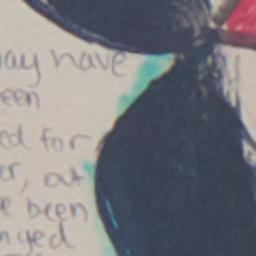 may have
een
ed for
er, out
e been
nged